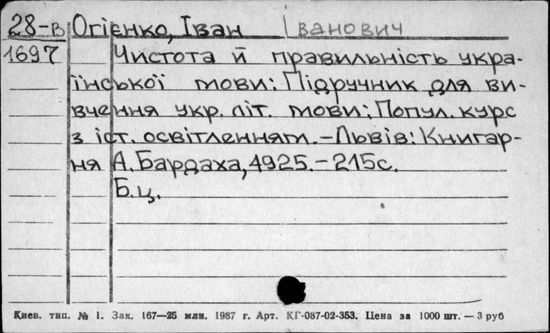 28-В Огієнко, Іван Іванович
1697 Чистота й правильність укра-
їнської мови: Підручник для ви-
вчення укр. літ. мови; Попул. курс
з іст. освітленням.-Львів: Книгар-
ня А. Бардаха, 1925.-215с.
Б.ц.
Киев. тип. № 1. Зак. 167—25 млн. 1987 г. Арт. КГ-087-02-353. Цена за 1000 шт. — 3 руб